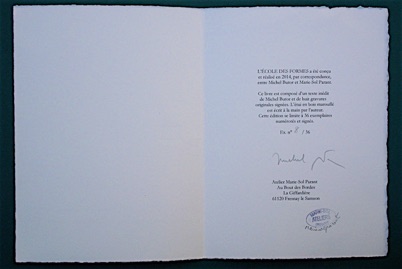 L'ÉCOLE DES FORMES a été conçu
et réalisé en 2014, par correspondance,
entre Michel Butor et Marie-Sol Parant.
Ce livre est composé d'un texte inédit
de Michel Butor et de huit gravures
originales signées. L'étui en bois
est écrit à la main par l'auteur.
Cette édition se limite à 36 exemplaires
numérotés et signés.
Ex. n° 8 / 36
Atelier Marie-Sol Parant
Au Bout des Bordes
La Giffardière
61320 Fresnay le Samson